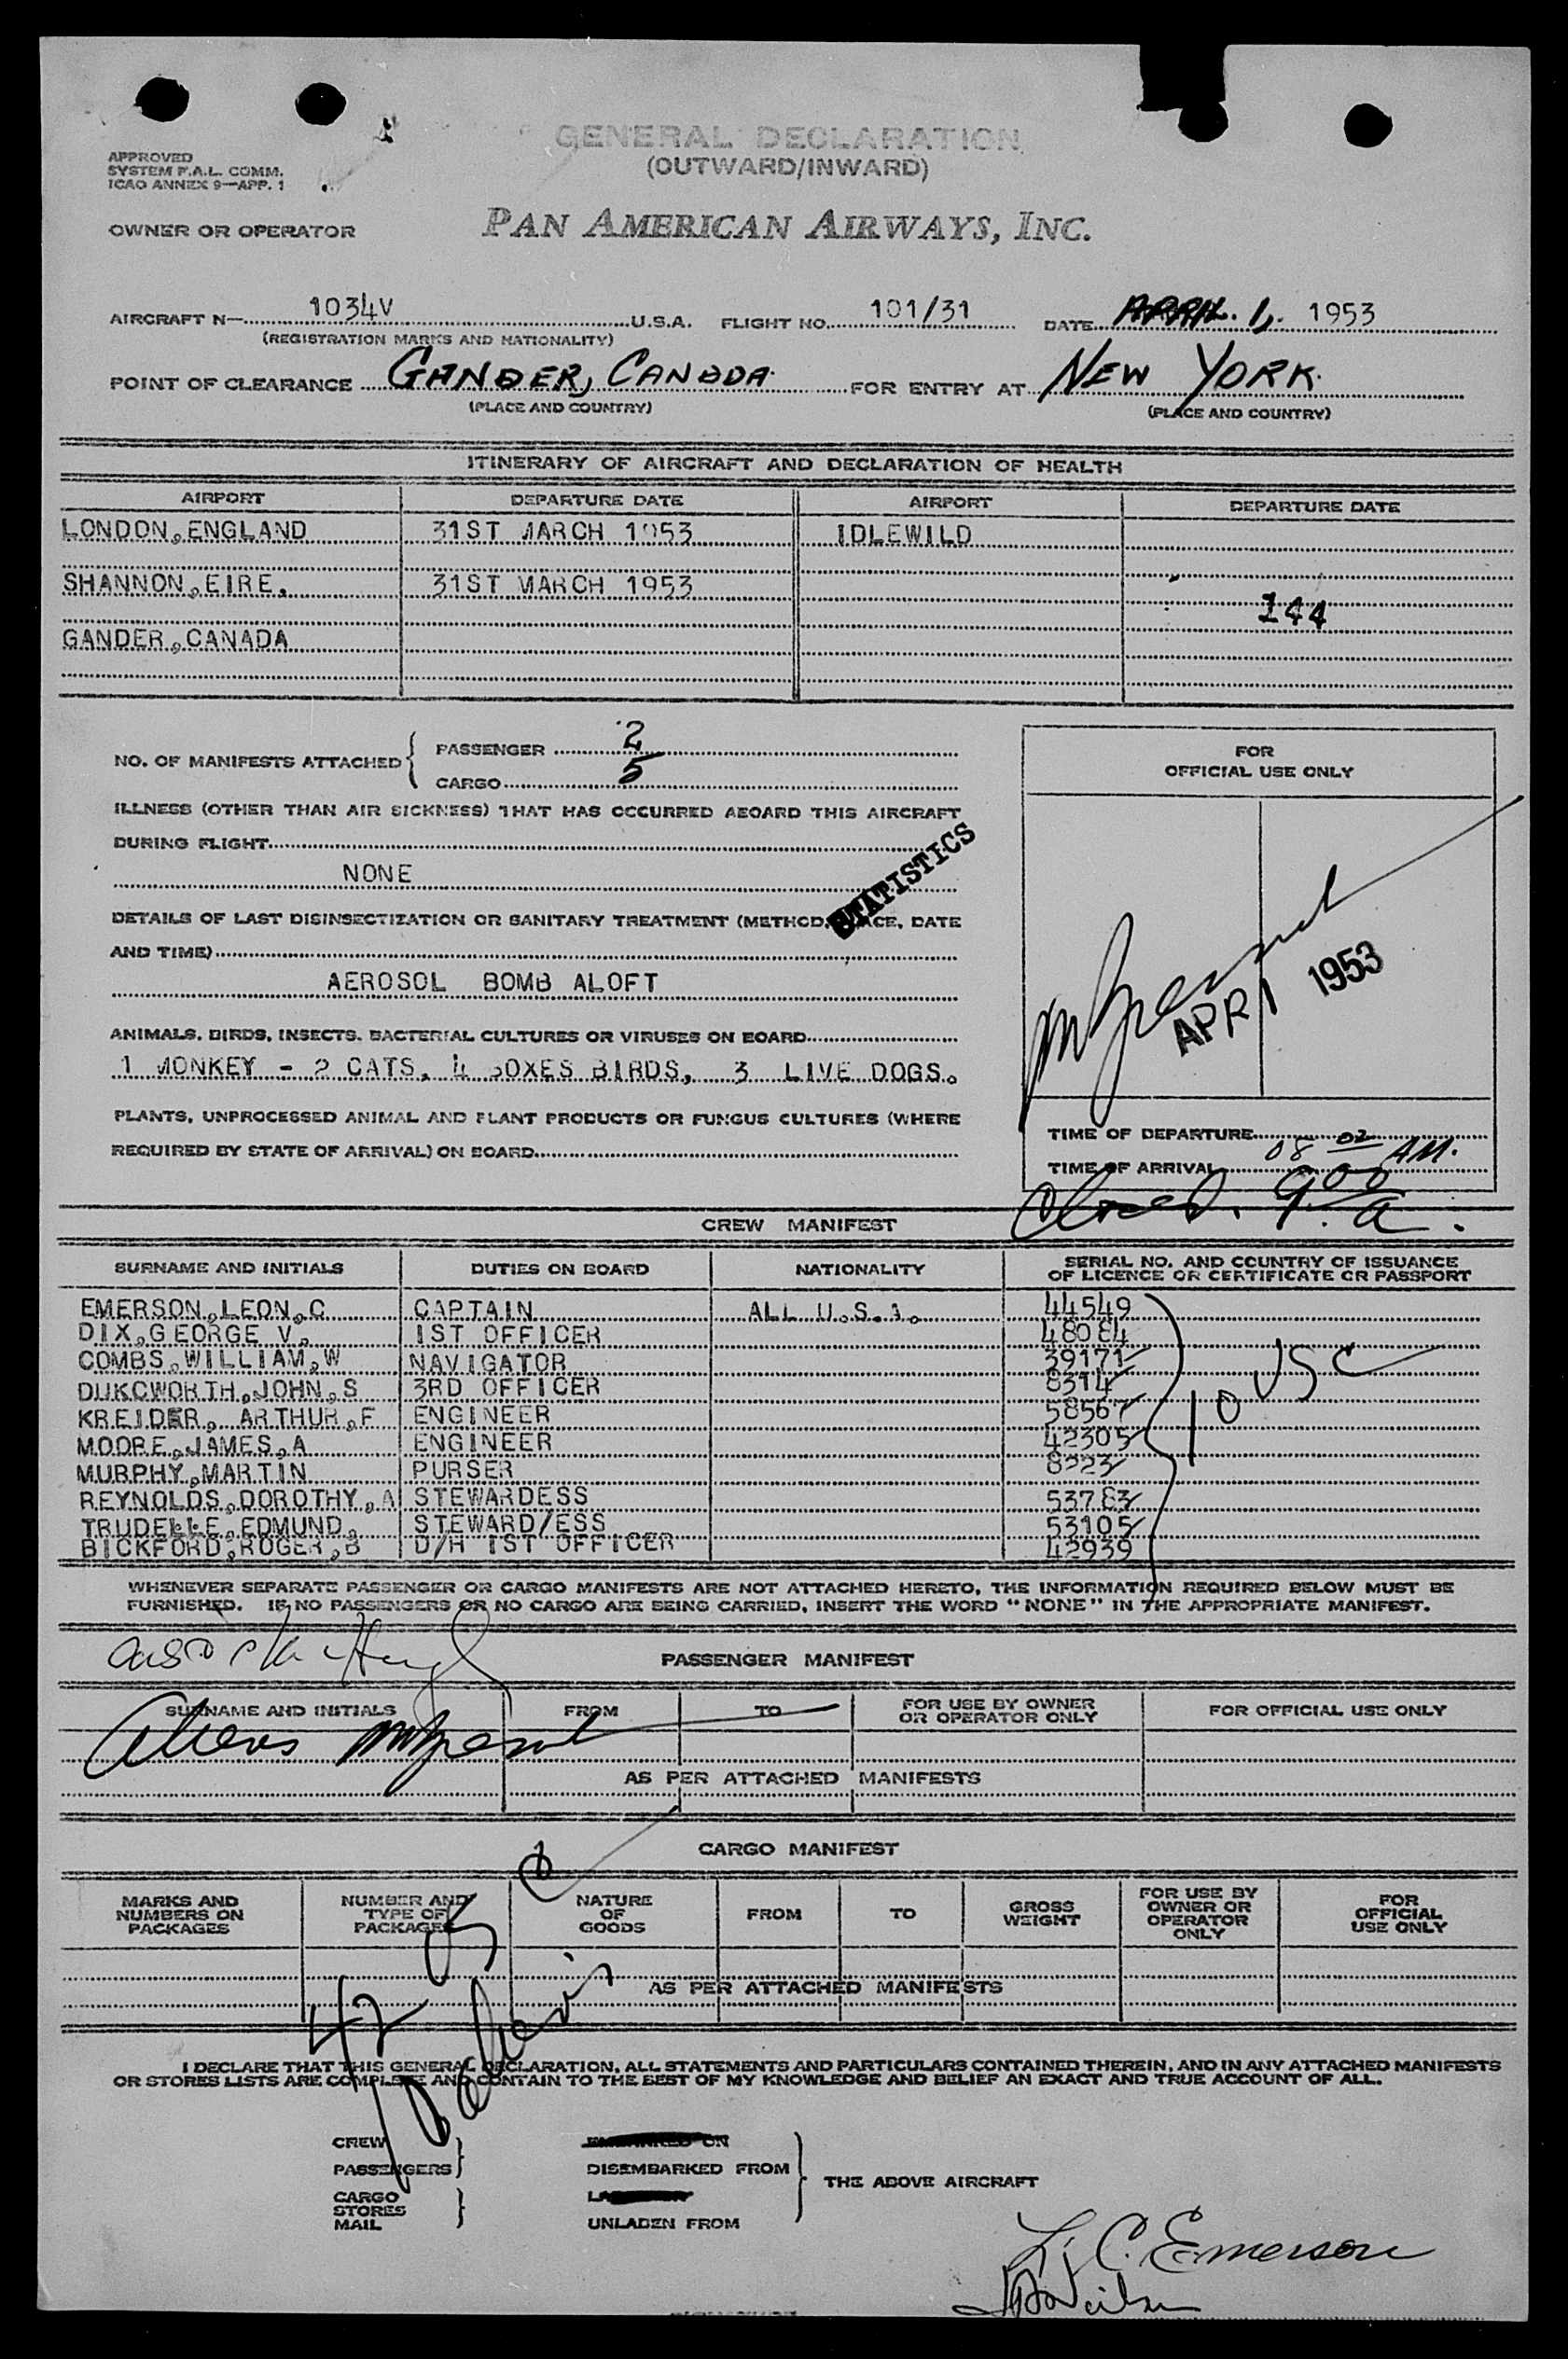 GENERAL DECLARATION
(OUTWARD/INWARD)
APPROVED
SYSTEM F.A.L. COMM.
ICAO ANNEX 9—APP. 1
OWNER OR OPERATOR PAN AMERICAN AIRWAYS, INC.
AIRCRAFT N— 1034V U.S.A. FLIGHT NO. 101/31 DATE APRIL 1, 1953
(REGISTRATION MARKS AND NATIONALITY)
POINT OF CLEARANCE GANDER, CANADA FOR ENTRY AT NEW YORK
(PLACE AND COUNTRY) (PLACE AND COUNTRY)
ITINERARY OF AIRCRAFT AND DECLARATION OF HEALTH
AIRPORT DEPARTURE DATE AIRPORT DEPARTURE DATE
LONDON,ENGLAND 31ST MARCH 1953 IDLEWILD
SHANNON,EIRE. 31ST MARCH 1953
144
GANDER,CANADA
NO. OF MANIFESTS ATTACHED { PASSENGER 2
CARGO 5
ILLNESS (OTHER THAN AIR SICKNESS) THAT HAS OCCURRED ABOARD THIS AIRCRAFT
DURING FLIGHT
NONE
STATISTICS
DETAILS OF LAST DISINSECTIZATION OR SANITARY TREATMENT (METHOD, PLACE, DATE
AND TIME)
AEROSOL BOMB ALOFT
ANIMALS, BIRDS, INSECTS, BACTERIAL CULTURES OR VIRUSES ON BOARD
1 MONKEY - 2 CATS, 4 BOXES BIRDS, 3 LIVE DOGS.
PLANTS, UNPROCESSED ANIMAL AND PLANT PRODUCTS OR FUNGUS CULTURES (WHERE
REQUIRED BY STATE OF ARRIVAL) ON BOARD
FOR
OFFICIAL USE ONLY
APR 1 1953
TIME OF DEPARTURE
TIME OF ARRIVAL 08 02 AM.
Closed. 9:00 a.
CREW MANIFEST
SURNAME AND INITIALS DUTIES ON BOARD NATIONALITY SERIAL NO. AND COUNTRY OF ISSUANCE
OF LICENCE OR CERTIFICATE OR PASSPORT
EMERSON,LEON,C CAPTAIN ALL U.S.A. 44549
DIX,GEORGE V, 1ST OFFICER 48084
COMBS,WILLIAM,W NAVIGATOR 39171
DUKCWORTH,JOHN,S 3RD OFFICER 8314
KREIDER, ARTHUR,F ENGINEER 58567
MOORE,JAMES,A ENGINEER 42305
MURPHY,MARTIN PURSER 8223
REYNOLDS,DOROTHY,A STEWARDESS 53783
TRUDELLE,EDMUND, STEWARD/ESS 53105
BICKFORD,ROGER,B D/H 1ST OFFICER 42939
10 USC
WHENEVER SEPARATE PASSENGER OR CARGO MANIFESTS ARE NOT ATTACHED HERETO, THE INFORMATION REQUIRED BELOW MUST BE
FURNISHED. IF NO PASSENGERS OR NO CARGO ARE BEING CARRIED, INSERT THE WORD "NONE" IN THE APPROPRIATE MANIFEST.
PASSENGER MANIFEST
SURNAME AND INITIALS FROM TO FOR USE BY OWNER
OR OPERATOR ONLY FOR OFFICIAL USE ONLY
AS PER ATTACHED MANIFESTS
CARGO MANIFEST
MARKS AND
NUMBERS ON
PACKAGES
NUMBER AND
TYPE OF
PACKAGES
NATURE
OF
GOODS
FROM
TO
GROSS
WEIGHT
FOR USE BY
OWNER OR
OPERATOR
ONLY
FOR
OFFICIAL
USE ONLY
AS PER ATTACHED MANIFESTS
I DECLARE THAT THIS GENERAL DECLARATION, ALL STATEMENTS AND PARTICULARS CONTAINED THEREIN, AND IN ANY ATTACHED MANIFESTS
OR STORES LISTS ARE COMPLETE AND CONTAIN TO THE BEST OF MY KNOWLEDGE AND BELIEF AN EXACT AND TRUE ACCOUNT OF ALL.
CREW
PASSENGERS } DISEMBARKED FROM } THE ABOVE AIRCRAFT
CARGO
STORES
MAIL } UNLADEN FROM
L. C. Emerson